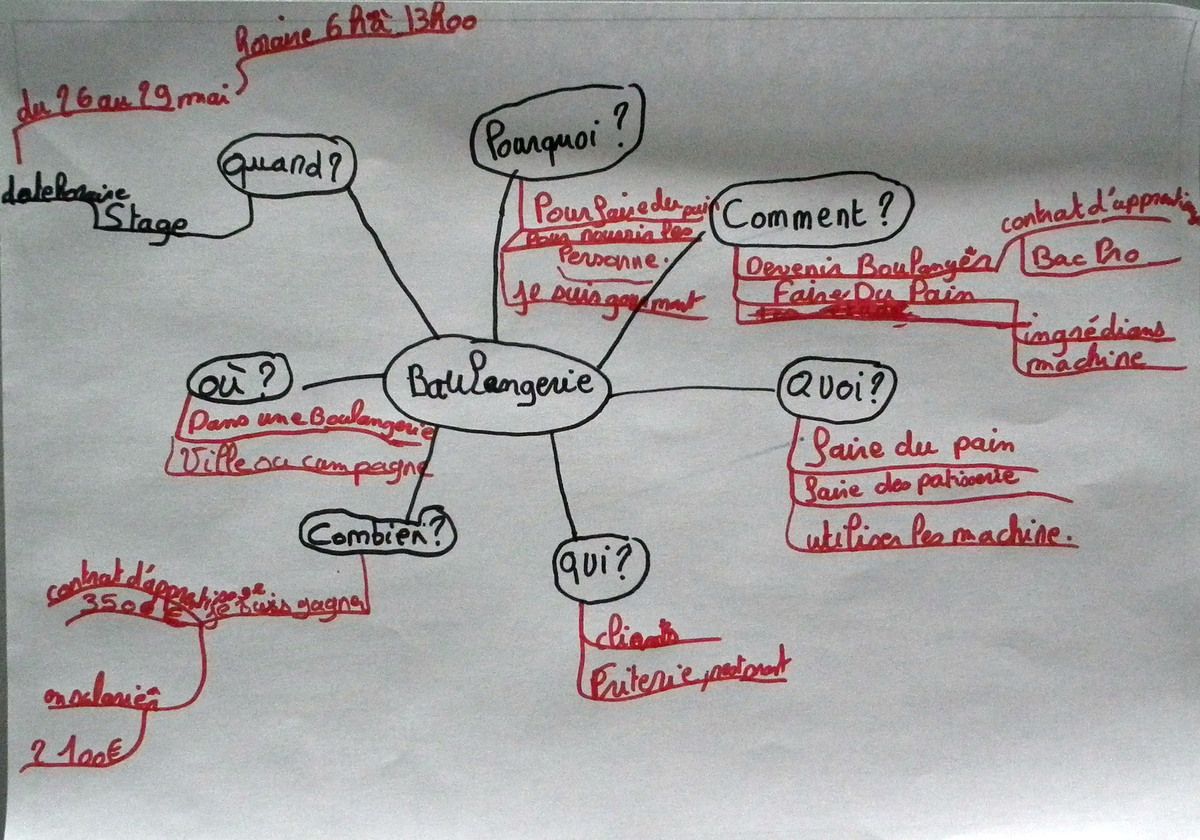 Horaire 6h à 13h00
du 26 au 29 mai
Quand?
date horaire
Stage
Pourquoi ?
Pour faire du pain
pour nourrir les
Personne.
Je suis
Comment ?
Devenir Boulanger
contrat d'apprentis
Bac Pro
Faire Du Pain
ingrédians
machine
Boulangerie
où ?
Dans une Boulangerie
Ville ou campagne
Quoi?
faire du pain
faire des patisserie
utiliser les machine.
Combien?
je suis gagne
contrat d'apprentissage
350€
en salarier
2 100€
qui?
clients
Friterie, restorant